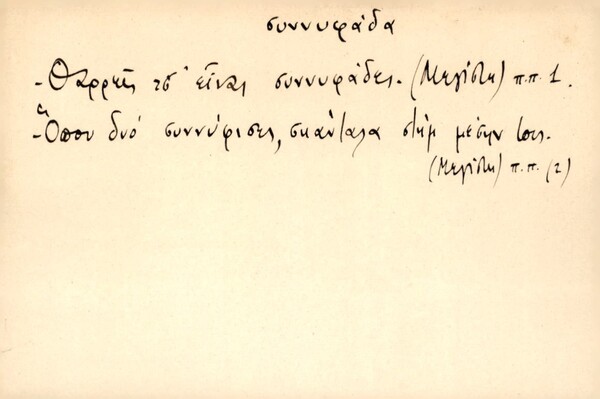 συννυφάδα
- Θαρρεῖς τσ' εἶναι συννυφάδες. (Μεγίστη) π.π. 1.
- Ὅπου δυό συννύφισες, σκάνταλα στήμ μέσην τους.
(Μεγίστη) π.π. (2)